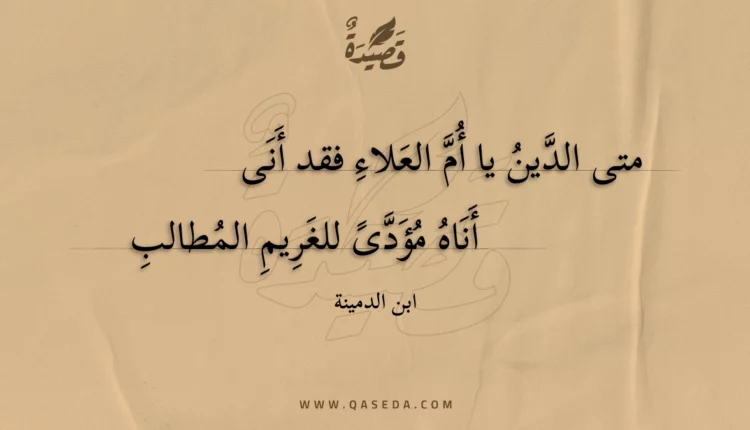 قَصِيْدَةٌ
متى الدَّينُ يا أُمَّ العَلاءِ فقد أَنَى
أَنَاهُ مُؤَدَّىً للغَرِيمِ المُطالبِ
ابن الدمينة
WWW.QASEDA.COM